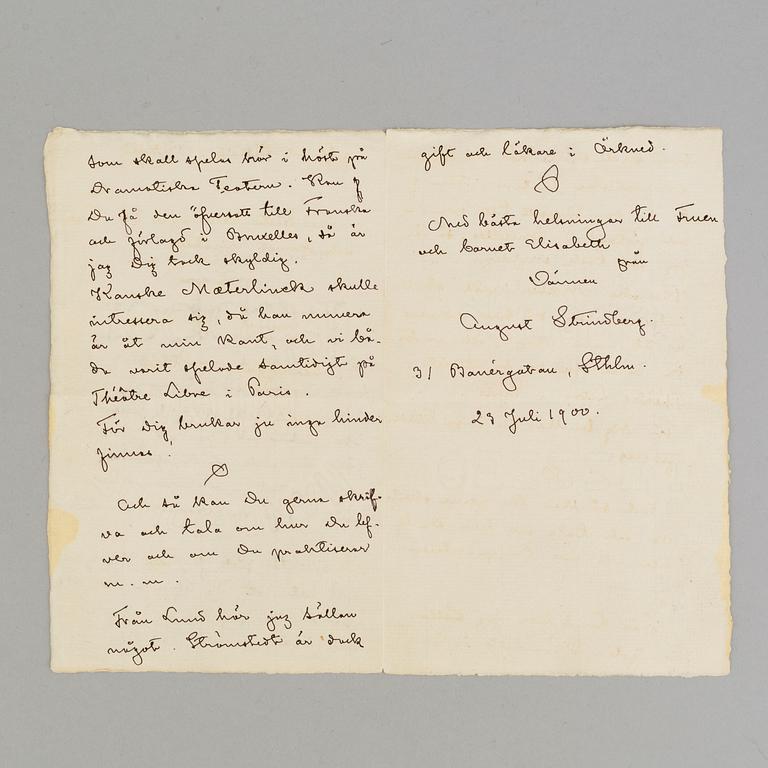 som skall spelas här i höst på
Dramatiska Teatern. Kan
Du få den öfversatt till Franska
och förlagd i Bruxelles, så är
jag Dig tack skyldig.
Kanske Mæterlinck skulle
intressera sig, då han numera
är åt min kant, och vi bå-
da varit spelade samtidigt på
Théâtre Libre i Paris.
För Dig brukar ju inga hinder
finnas!
Och så kan Du gerna skrif-
va och tala om hur Du lef-
ver och om Du praktiserar
m. m.
Från Lund hör jag sällan
något. Strömstedt är dock
gift och läkare i Örkned.
Med bästa helsningar till Fruen
och barnet Elisabeth
från
Vännen
August Strindberg.
31 Banérgatan, Sthlm.
23 Juli 1900.